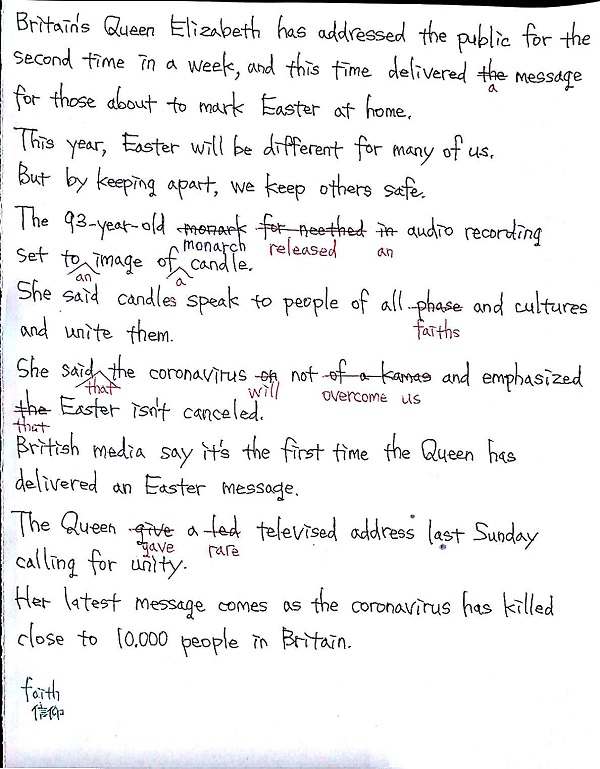 Britain's Queen Elizabeth has addressed the public for the
second time in a week, and this time delivered the message
a
for those about to mark Easter at home.
This year, Easter will be different for many of us.
But by keeping apart, we keep others safe.
The 93-year-old monark for neethed in audio recording
monarch released an
set to image of candle.
an a
She said candles speak to people of all phase and cultures
faiths
and unite them.
She said the coronavirus on not of a kamas and emphasized
that will overcome us
the Easter isn't canceled.
that
British media say it's the first time the Queen has
delivered an Easter message.
The Queen give a led televised address last Sunday
gave rare
calling for unity.
Her latest message comes as the coronavirus has killed
close to 10,000 people in Britain.
faith
信仰